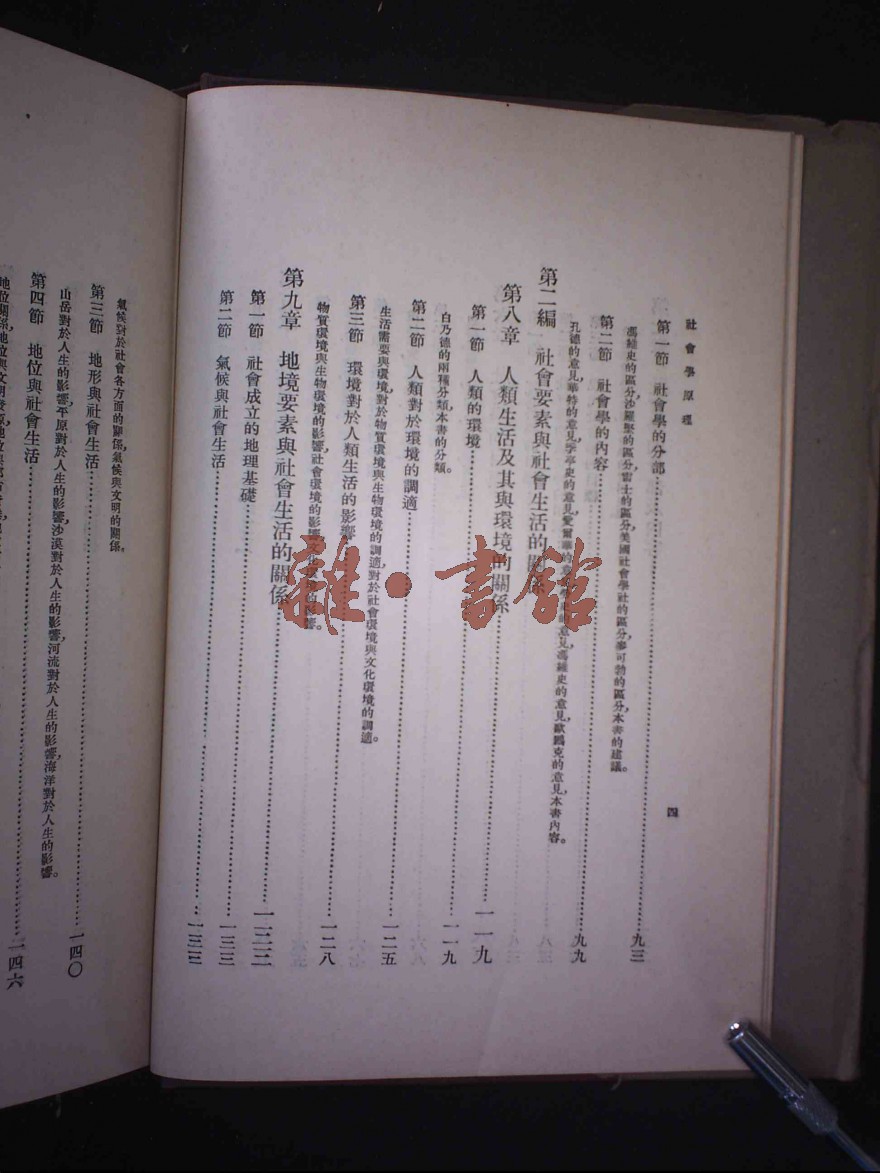 社會學原理
四
第一節 社會學的分部……九三
馮維史的區分,沙羅堅的區分,雷士的區分,美國社會學社的區分,麥可勃的區分,本書的建議。
第二節 社會學的內容……九九
孔德的意見,華特的意見,季亭史的意見,愛爾華的意見,馮維史的意見,歐鷗克的意見,本書內容。
第二編 社會要素與社會生活的關係
第八章 人類生活及其與環境的關係……一一九
第一節 人類的環境……一一九
白乃德的兩種分類,本書的分類。
第二節 人類對於環境的調適……一二五
生活需要與環境,對於物質環境與生物環境的調適,對於社會環境與文化環境的調適。
第三節 環境對於人類生活的影響……一二八
物質環境與生物環境的影響,社會環境的影響,文化環境的影響。
第九章 地境要素與社會生活的關係……一三三
第一節 社會成立的地理基礎……一三三
第二節 氣候與社會生活……一三三
氣候對於社會各方面的關係,氣候與文明的關係。
第三節 地形與社會生活……一四〇
山岳對於人生的影響,平原對於人生的影響,沙漠對於人生的影響,河流對於人生的影響,海洋對於人生的影響。
第四節 地位與社會生活……一四六
雜·書館